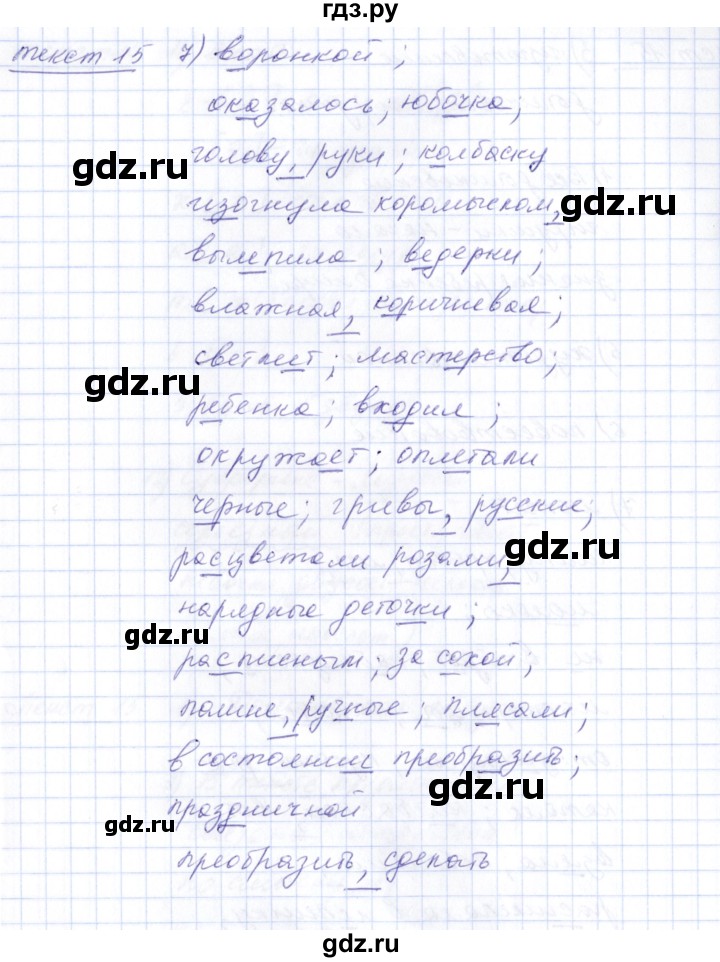 гдз.ру
текст 15 7) воронкой;
оказалось; юбочка;
голову, руки; колбаску
gdz.ru
изогнула коромыслом,
gdz.ru
вылепила; ведерки;
влажная, коричневая;
светлеет; мастерство;
gdz.ru
ребенка; входил;
gdz.ru
окружает; оплетали
черные; гривы, русские;
расцветали розами,
gdz.ru
нарядные деточки;
gdz.ru
расписным; за сохой;
пашне, ручные; плясали;
в состоянии преобразить;
gdz.ru
праздничной
gdz.ru
преобразить, сделать
gdz.ru